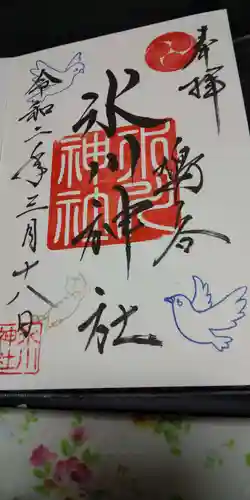 奉拝
鳩谷
氷川神社
令和二年三月十八日
氷川
神社
氷川
神社